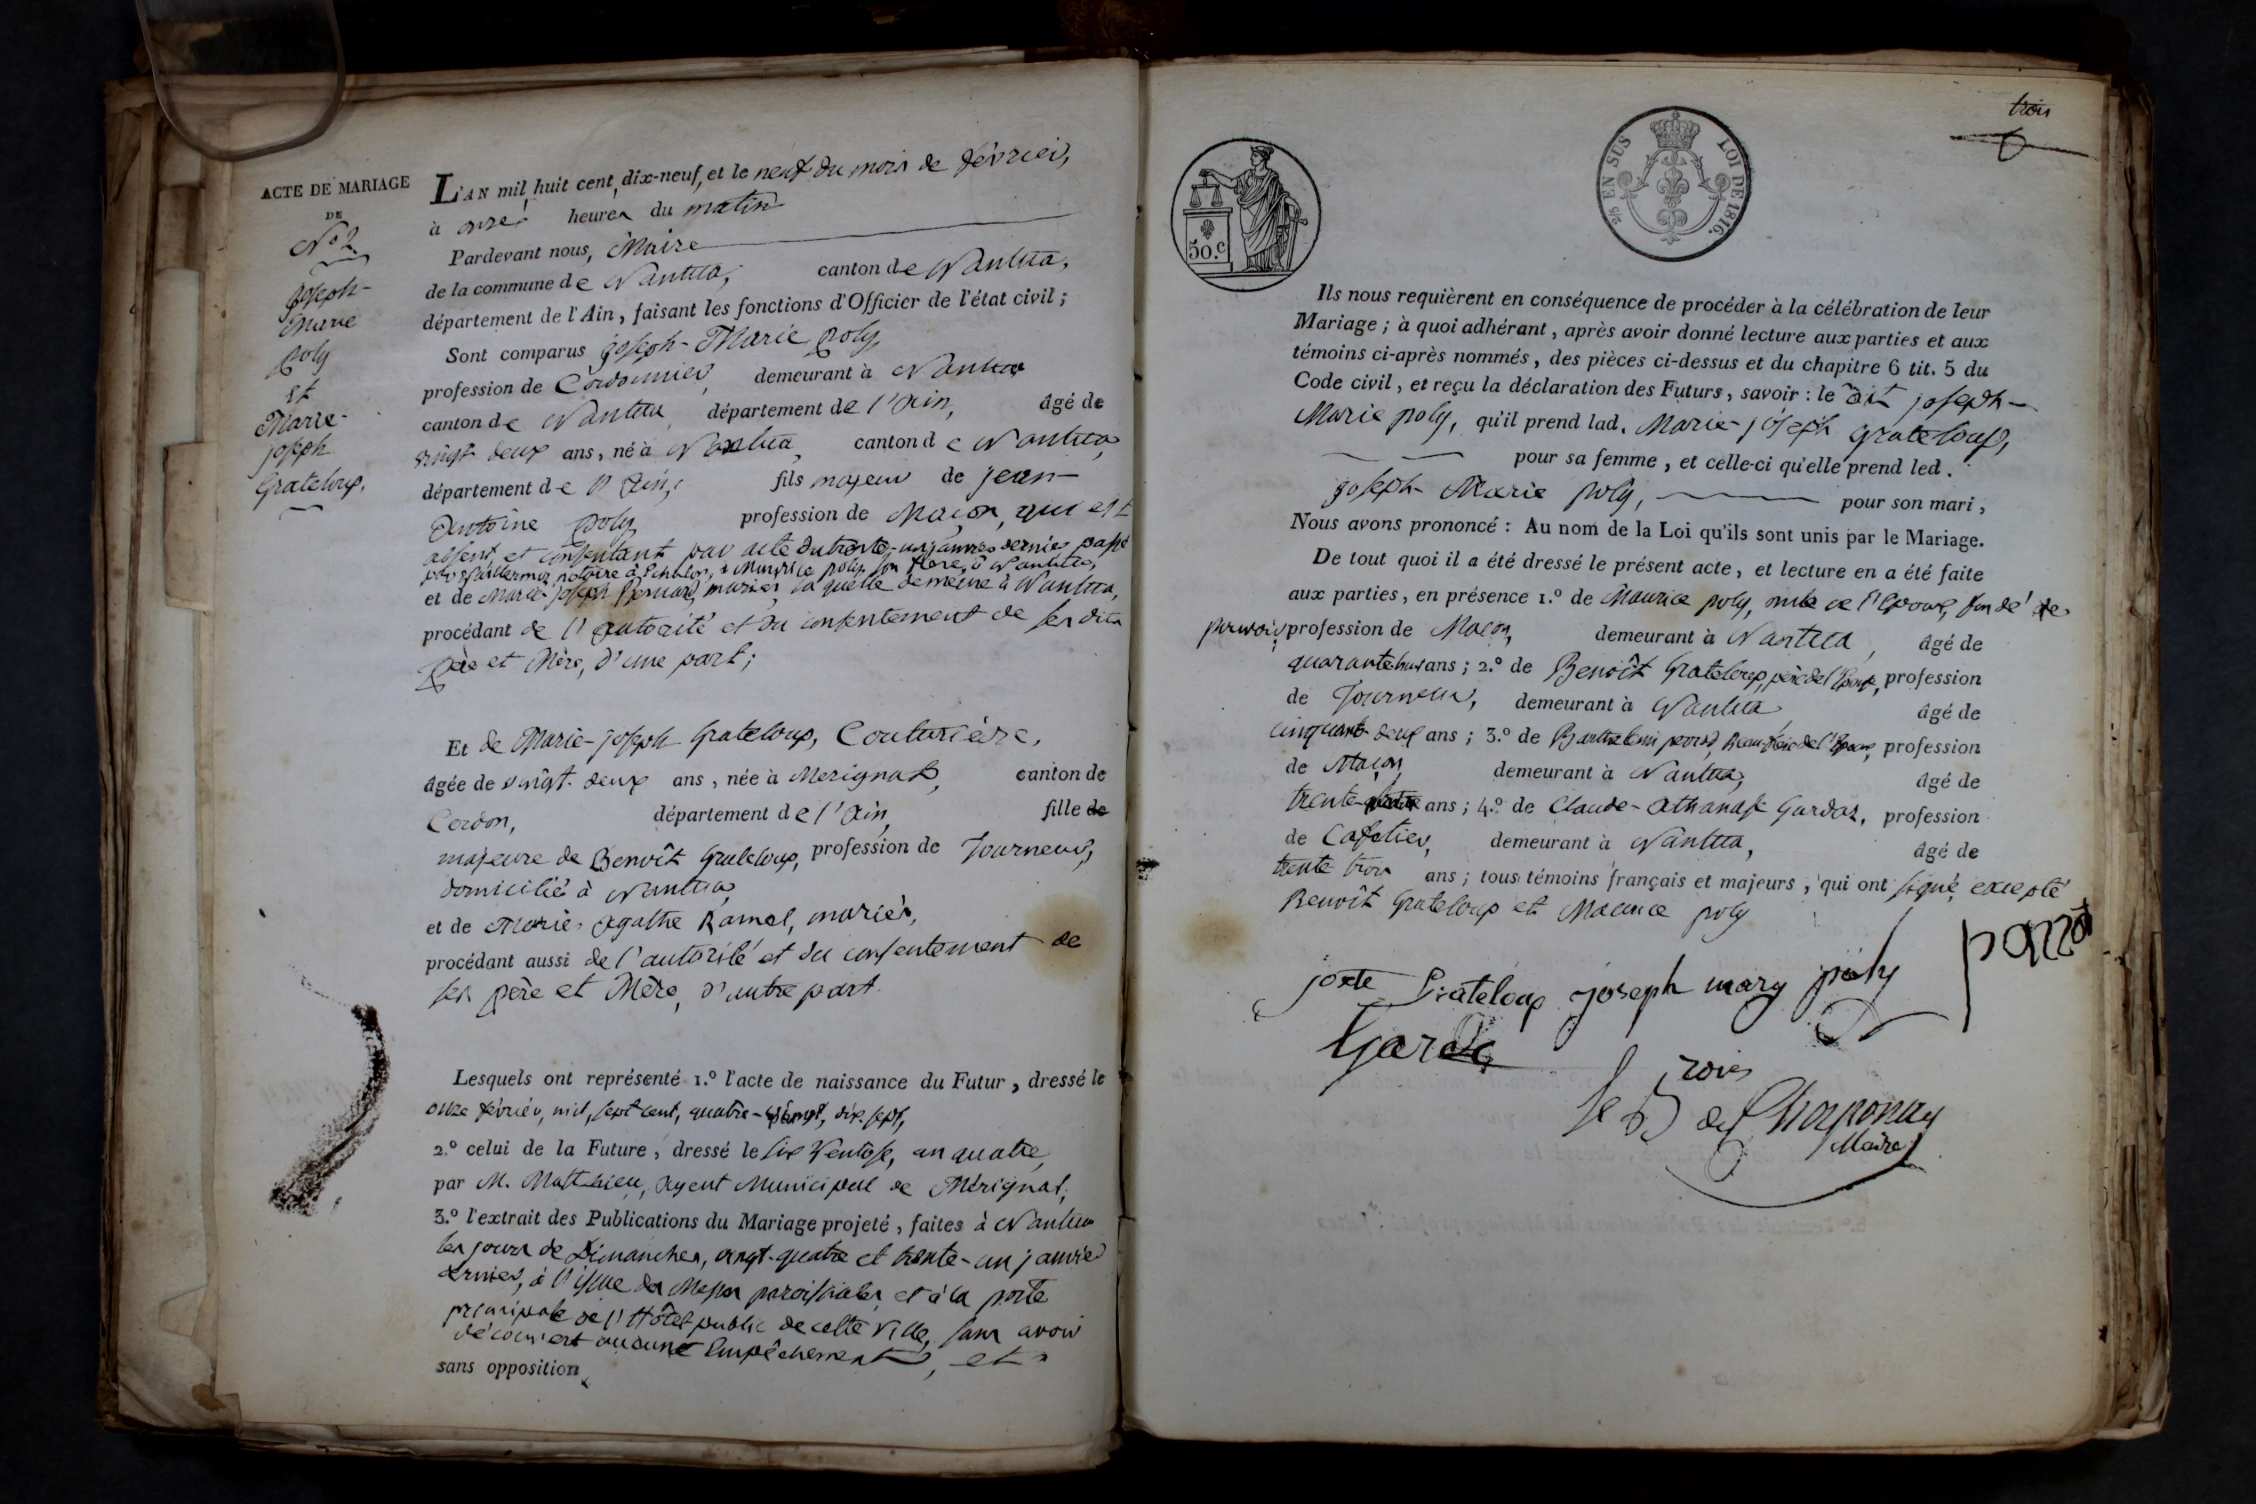 ACTE DE MARIAGE
DE
N.o 2
joseph-
Marie
poly
Et
Marie-
joseph
Grateloup.
L'AN mil huit cent dix-neuf, et le neuf du mois de février,
à onze heures du matin
Pardevant nous, Maire
de la commune de Nantua, canton de Nantua,
département de l'Ain, faisant les fonctions d'Officier de l'état civil;
Sont comparus joseph-Marie poly,
profession de Cordonnier, demeurant à Nantua
canton de Nantua, département de l'Ain, âgé de
vingt deux ans, né à Nantua, canton de Nantua,
département de l'Ain, fils majeur de jean-
Antoine poly, profession de Maçon, qui est
absent, et consentant par acte du trente-un janvier dernier passé
notaire à Echalon, à Maurice poly son frere, à Nantua,
et de Marie-joseph mariés, laquelle demeure à Nantua,
procédant de l'autorité et du consentement de ses dits
père et Mère, d'une part;
Et de Marie-joseph Grateloup, Couturière,
âgée de vingt-deux ans, née à Merignat, canton de
Cerdon, département de l'Ain, fille de
majeure de Benoît Grateloup, profession de Tourneur,
domicilié à Nantua,
et de Marie-Agathe Ramel, mariés,
procédant aussi de l'autorité et du consentement de
ses père et Mère, d'autre part.
Lesquels ont représenté 1.o l'acte de naissance du Futur, dressé le
onze février, mil, sept cent, quatre-vingt, dix-sept,
2.o celui de la Future, dressé le six Ventose, an quatre,
par M. Matthieu, Agent Municipal de Mérignat,
3.o l'extrait des Publications du Mariage projeté, faites à Nantua
les jours de Dimanches, vingt-quatre et trente-un janvier
dernier, à l'issue des Messes paroissiales et à la porte
principale de l'Hôtel public de cette Ville, sans avoir
découvert aucune Empêchement, et
sans opposition
trois
50.c
2/5 EN SUS LOI DE 1816.
Ils nous requièrent en conséquence de procéder à la célébration de leur
Mariage; à quoi adhérant, après avoir donné lecture aux parties et aux
témoins ci-après nommés, des pièces ci-dessus et du chapitre 6 tit. 5 du
Code civil, et reçu la déclaration des Futurs, savoir: le dit joseph-
Marie poly, qu'il prend lad. Marie-joseph Grateloup,
pour sa femme, et celle-ci qu'elle prend led.
joseph-Marie poly, pour son mari,
Nous avons prononcé: Au nom de la Loi qu'ils sont unis par le Mariage.
De tout quoi il a été dressé le présent acte, et lecture en a été faite
aux parties, en présence 1.o de Maurice poly, oncle de l'Epoux, fondé de
pouvoir, profession de Maçon, demeurant à Nantua, âgé de
quarante huit ans; 2.o de Benoît Grateloup, père de l'Epouse, profession
de Tourneur, demeurant à Nantua, âgé de
cinquante-deux ans; 3.o de Barthelemi Beau-frère de l'Epoux, profession
de Maçon, demeurant à Nantua, âgé de
trente ans; 4.o de Claude-Athanase Gardaz, profession
de Cafetier, demeurant à Nantua, âgé de
trente trois ans; tous témoins français et majeurs, qui ont signé, excepté
Benoît Grateloup et Maurice poly
jozte Grateloup joseph mary poly
Le de Chaponay
Maire